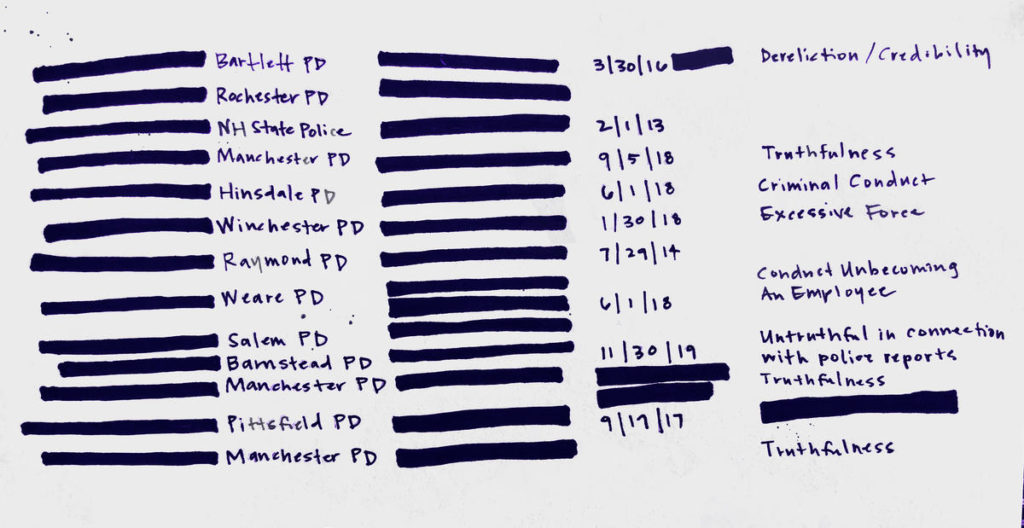 Bartlett PD 3/30/16 Dereliction/Credibility
Rochester PD
NH State Police 2/1/13
Manchester PD 9/5/18 Truthfulness
Hinsdale PD 6/1/18 Criminal Conduct
Winchester PD 1/30/18 Excessive Force
Raymond PD 7/29/14
Conduct Unbecoming
Weare PD 6/1/18 An Employee
Salem PD Untruthful in connection
Barnstead PD 11/30/19 with police reports
Manchester PD Truthfulness
Pittsfield PD 9/19/17
Manchester PD Truthfulness